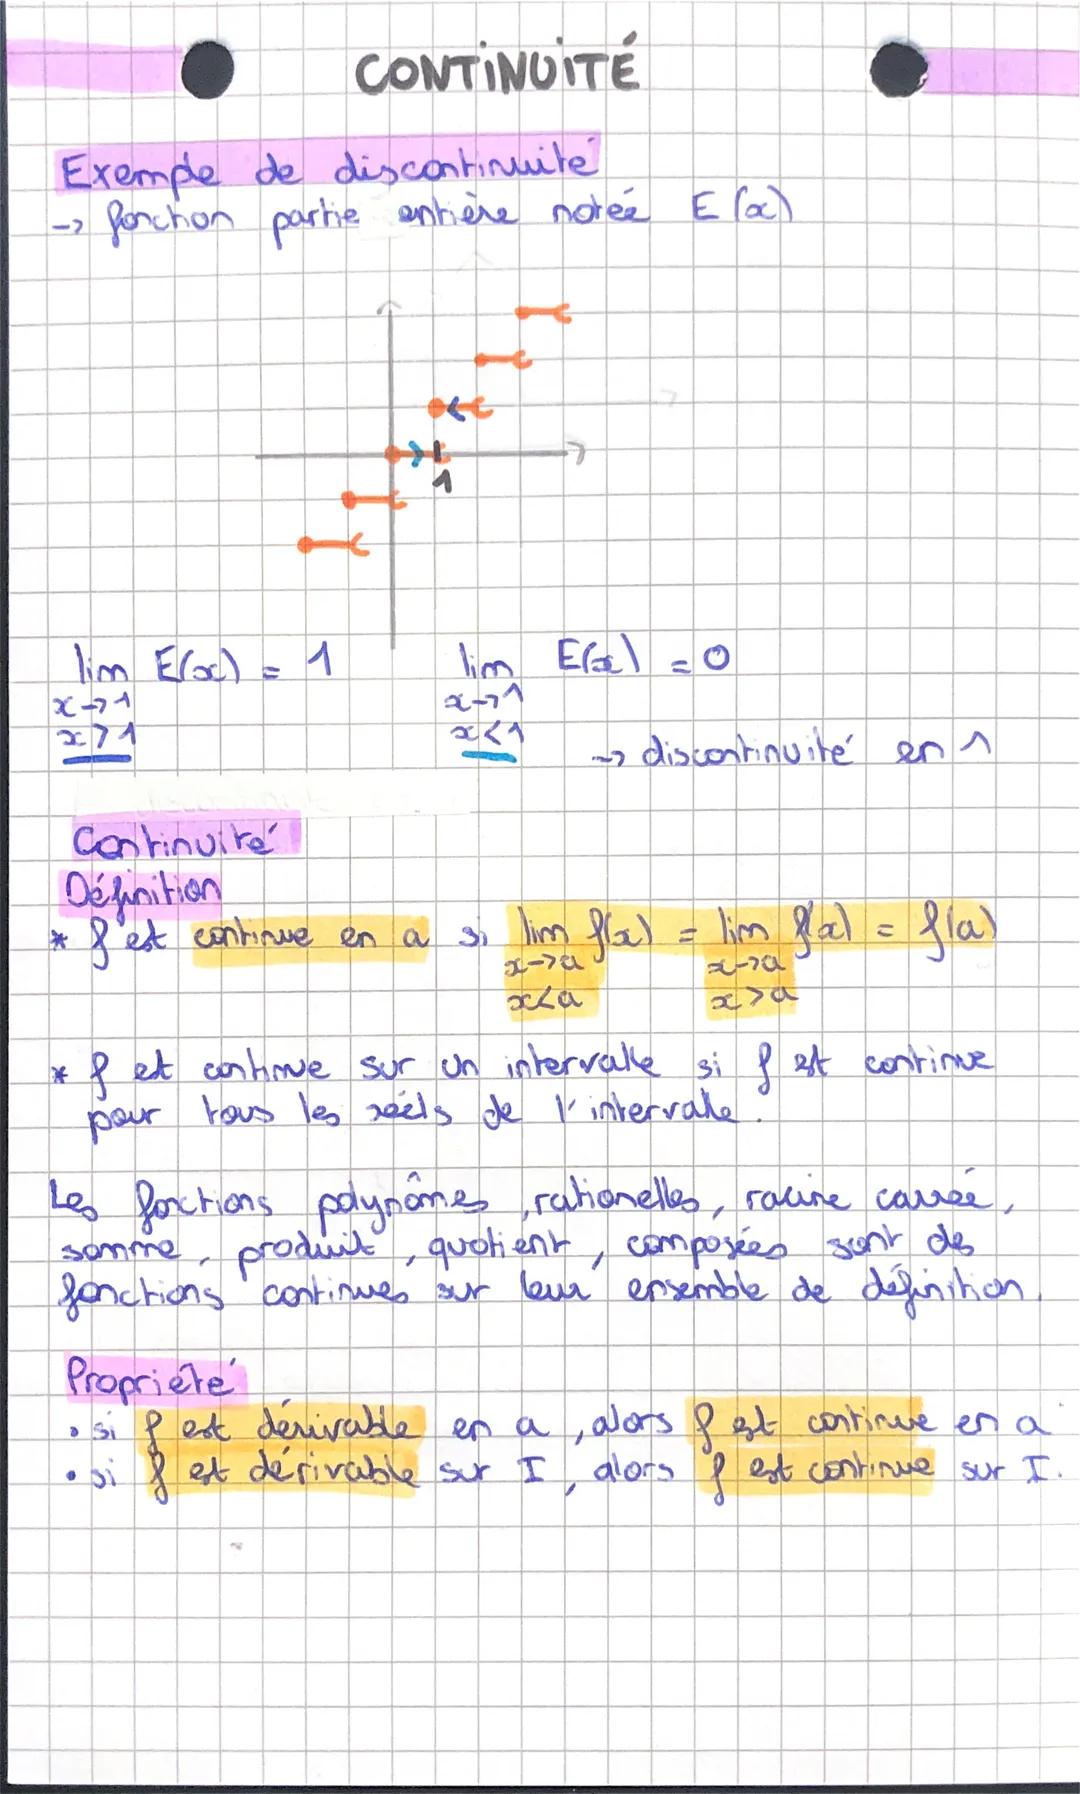 CONTINUITÉ
Exemple de discontinuité
-> fonction partie entière notée E(x)
1
lim E(x) = 1 lim E(x) = 0
x->1 x->1
x>1 x<1
-> discontinuité en 1
Continuité
Définition
* f est continue en a si lim f(x) = lim f(x) = f(a)
x->a x->a
x<a x>a
* f est continue sur un intervalle si f est continue
pour tous les réels de l'intervalle.
Les fonctions polynômes, rationelles, racine carrée,
somme, produit, quotient, composées sont des
fonctions continues sur leur ensemble de définition.
Propriété
• si f est dérivable en a, alors f est continue en a
• si f est dérivable sur I, alors f est continue sur I.